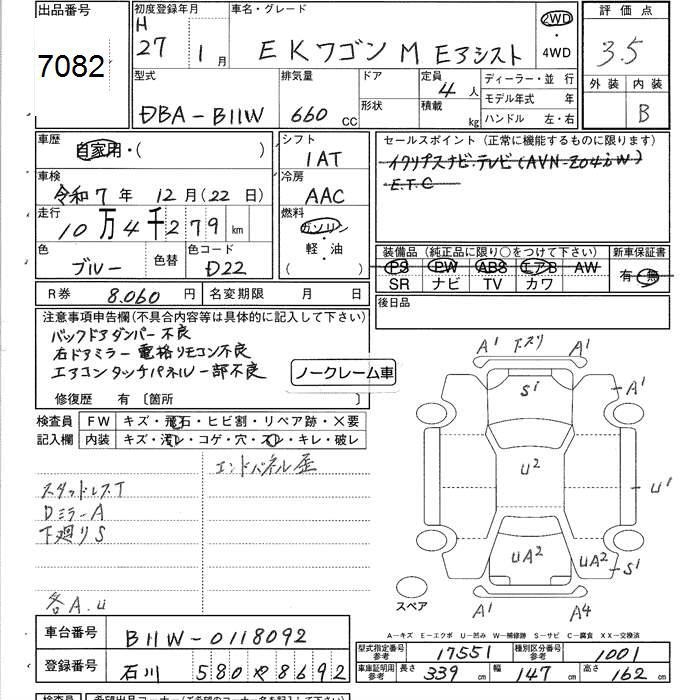 出品番号
7082
初度登録年月
H
27 1月
車名・グレード
EKワゴン M Eアシスト
2WD
・
4WD
評価点
3.5
外装 内装
B
型式
DBA-B11W
排気量
660 CC
ドア
形状
定員
4人
積載
kg
ディーラー・並 行
モデル年式 年
ハンドル 左・右
車歴
自家用・( )
シフト
IAT
車検
令和7年 12月(22日)
冷房
AAC
走行
10万4千279km
燃料
ガソリン
・
軽・油
( )
色
ブルー
色替
色コード
D22
セールスポイント(正常に機能するものに限ります)
イクリプスナビ・テレビ(AVN-Z04iW)
E.T.C
装備品(純正品に限り○をつけて下さい)
PS PW ABS エアB AW
SR ナビ TV カワ
新車保証書
有・無
R券 8.060円
名変期限 月 日
後日品
注意事項申告欄(不具合内容等は具体的に記入して下さい)
バックドアダンパー不良
右ドアミラー電格リモコン不良
エアコンタッチパネル一部不良
ノークレーム車
修復歴 有〔箇所 〕
検査員
記入欄
FW キズ・飛石・ヒビ割・リペア跡・×要
内装 キズ・汚レ・コゲ・穴・スレ・キレ・破レ
エンドパネル歪
スタッドレスT
DミラーA
下廻りS
各A.u
A' 下スリ A'
S'
A'
U2
U'
UA2
UA2
S'
A' A4
スペア
A-キズ E-エクボ U-凹み W-補修跡 S-サビ C-腐食 XX-交換済
車台番号
B11W-0118092
登録番号
石川 580や8692
型式指定番号
参考
17551
種別区分番号
参考
1001
車庫証明用
参考
長さ 339cm
幅 147cm
高さ 162cm
検査員